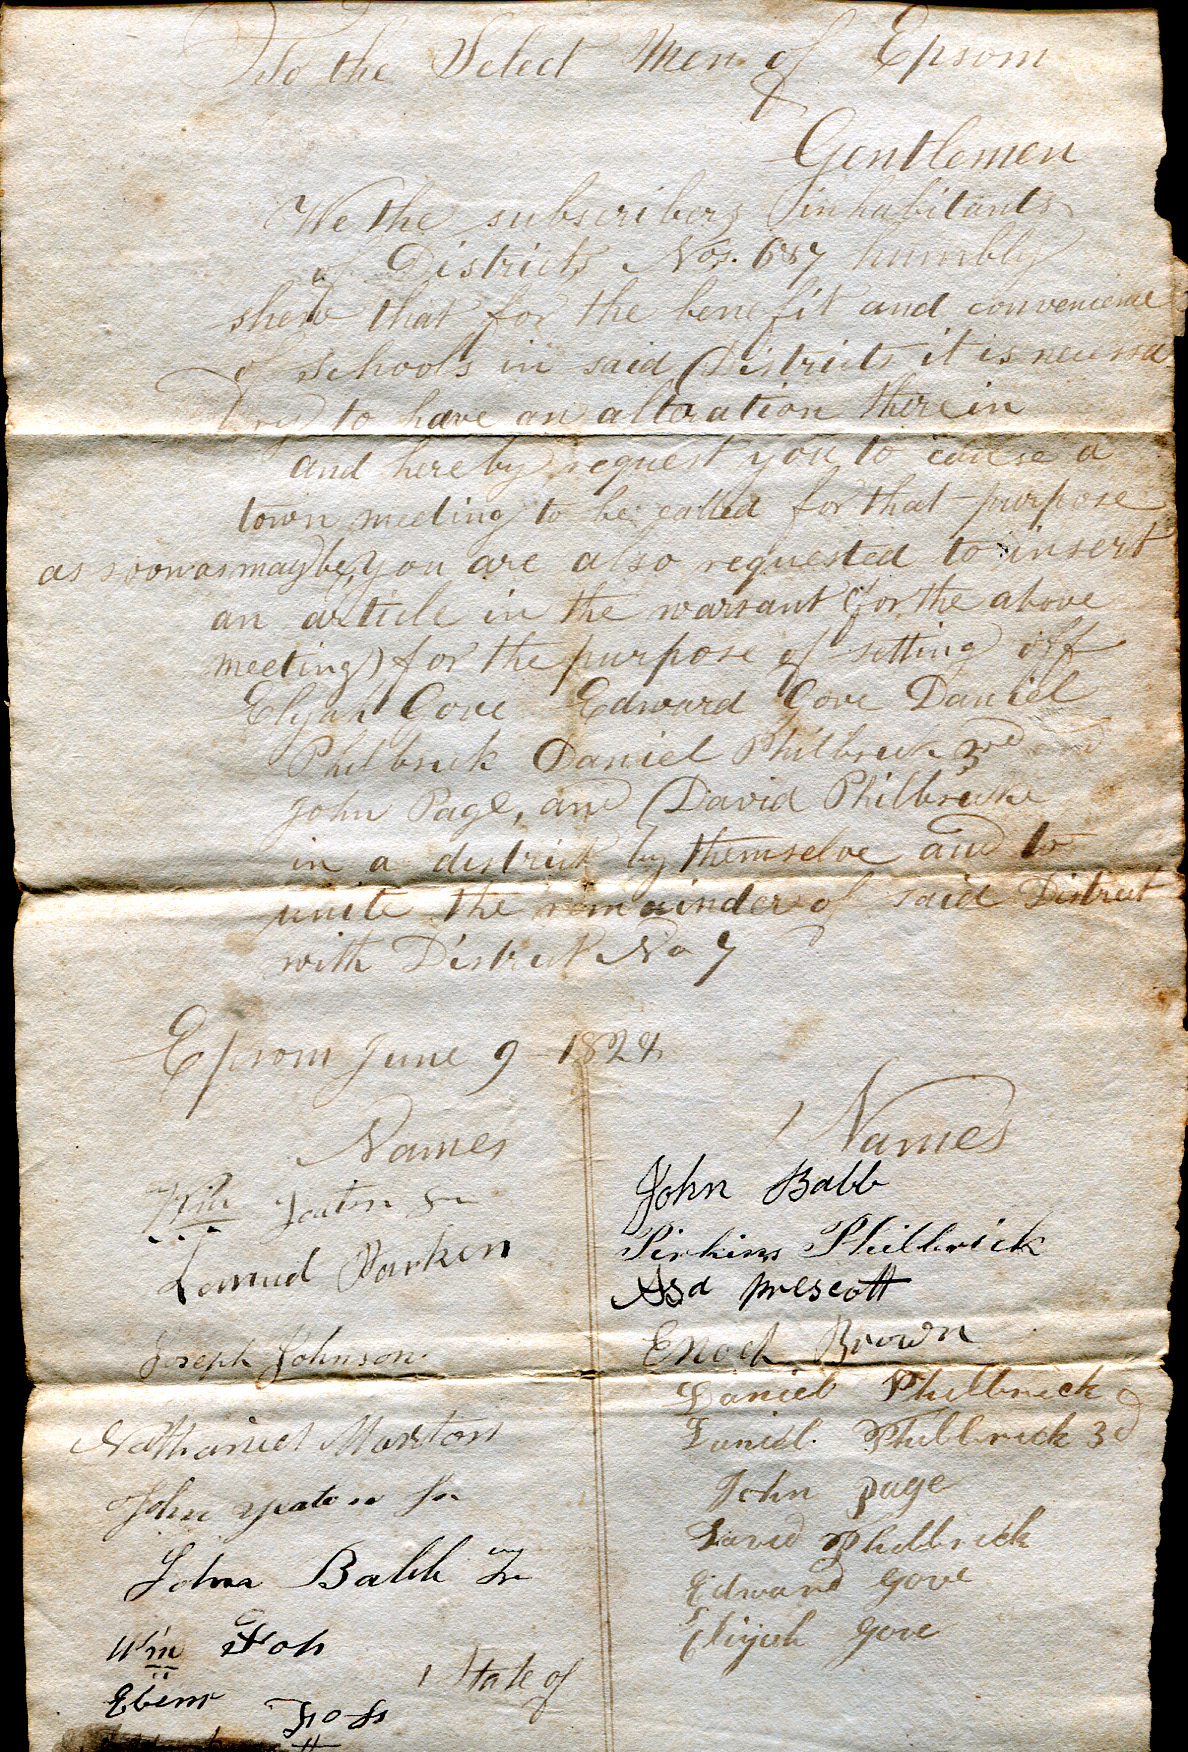 To the Select Men of Epsom
Gentlemen
We the subscribers inhabitants
of Districts Nos. 6 & 7 humbly
shew that for the benefit and convenience
of schools in said Districts it is necessa
ry to have an alteration there in
and here by request you to cause a
town meeting to be called for that purpose
as soon as may be, you are also requested to insert
an article in the warrant (for the above
meeting) for the purpose of setting off
Elijah Gove Edward Gove Daniel
Philbrick Daniel Philbrick 3rd and
John Page, and David Philbricke
in a district by themselve and to
unite the remainder of said District
with District No 7
Epsom June 9 1824
Names
Names
Wm Yeaton Jr
Samuel Parken
Joseph Johnson.
Nathaniel Marton
John yeaton Jr
John Babb Jr
Wm Foss
Ebenr Foss
John Babb
Perkins Philbrick
Asa prescott
Enoch Brown
Daniel Philbrick
Daniel. Philbrick 3d
John page
David Philbrick
Edward gove
Elijah gove
State of